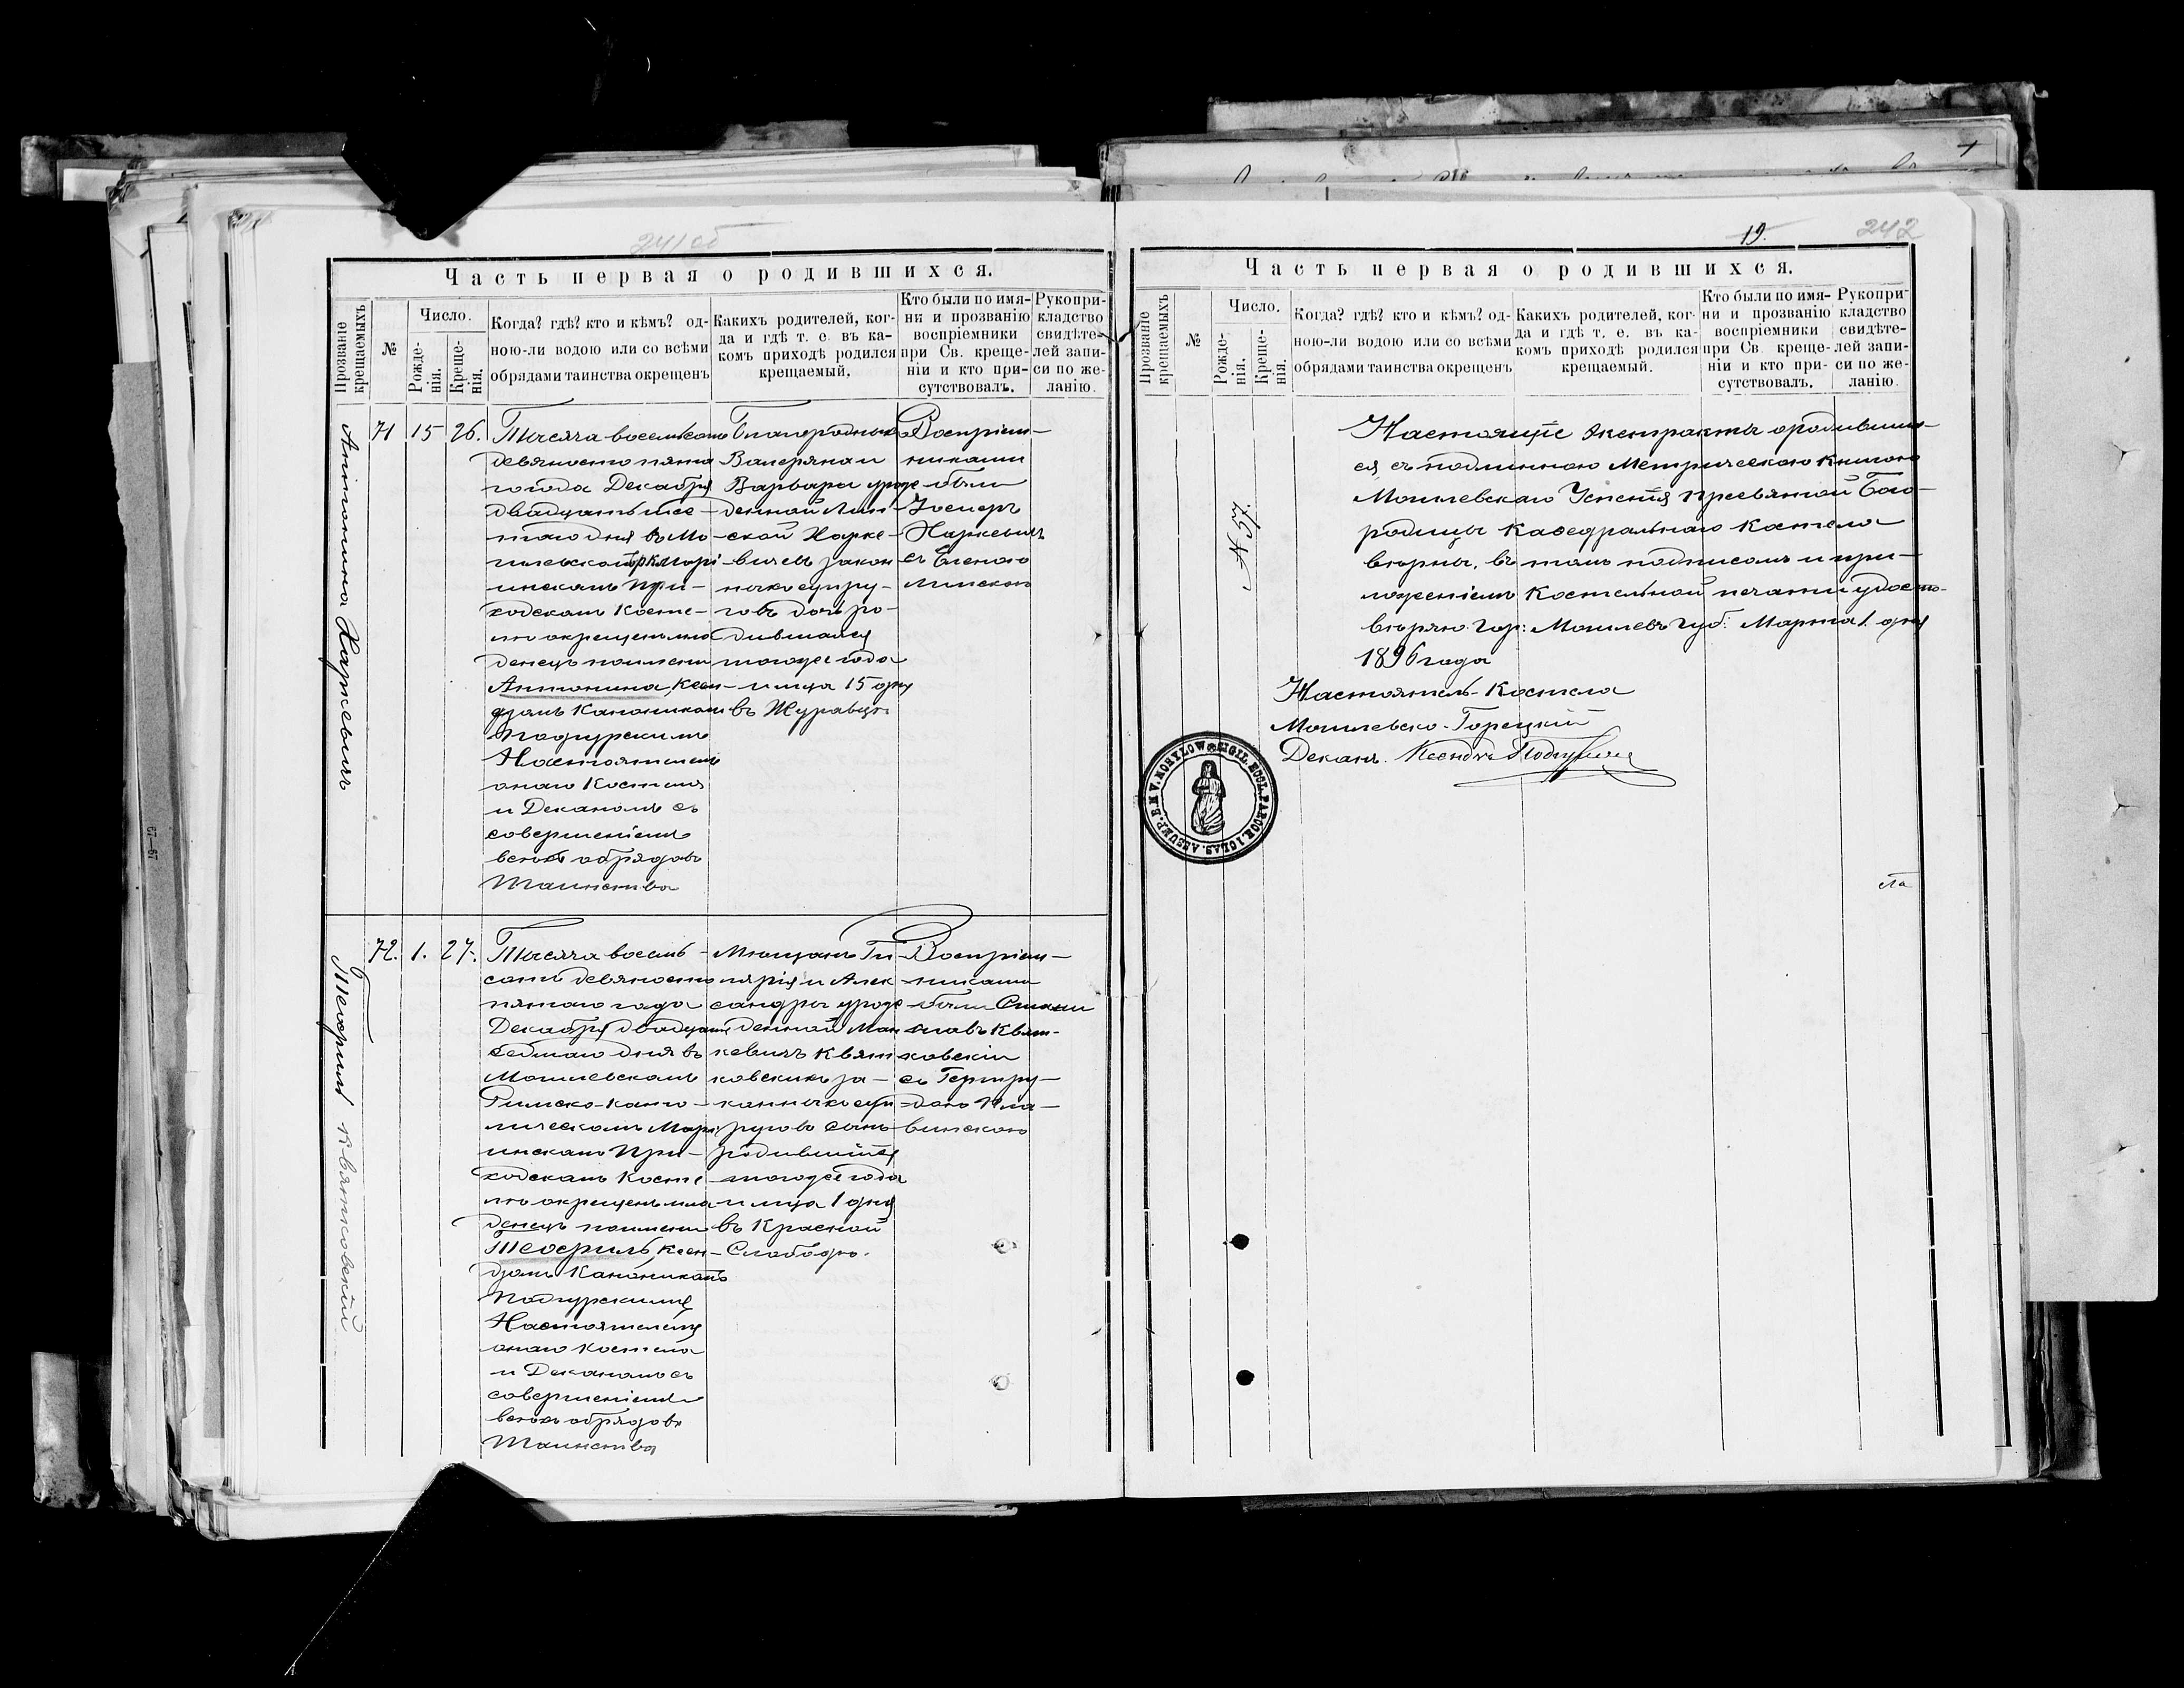 241об
Часть первая о родившихся.
Прозваніе крещаемыхъ
№
Число.
Рожде-
нія.
Креще-
нія.
Когда? гдѣ? кто и кѣмъ? од-
ною-ли водою или со всѣми
обрядами таинства окрещенъ
Какихъ родителей, ког-
да и гдѣ т. е. въ ка-
комъ приходѣ родился
крещаемый.
Кто были по имя-
ни и прозванію
воспріемники
при Св. креще-
ніи и кто при-
сутствовалъ.
Рукопри-
кладство
свидѣте-
лей запи-
си по же-
ланію.
Антонина Наркевичъ
71 15 26.
Тысяча восемьсотъ
девяносто пята
го года Декабря
двадцать шес-
таго дня въ Мо-
гилевскомъ р к Марі
инскомъ при-
ходскомъ косте-
лѣ окрещенъ мла
денецъ по имени
Антонина, ксен-
дзомъ Каноникомъ
Подгурскимъ
Настоятелемъ
онаго Костела
и Деканомъ съ
совершеніемъ
всѣхъ обрядовъ
Таинства
Благородныхъ
Валеріяна и
Варвары урож
денной Лип-
ской Нарке-
вичевъ закон
ныхъ супру-
говъ дочь ро-
дившаяся
тогоже года
и м-ца 15 дня
въ Журавцѣ
Воспріем-
никами
были
Іосифъ
Наркевичъ
съ Еленою
Липскою
Теофилъ Квятковскій
72. 1. 27.
Тысяча восемь-
сотъ девяносто
пятаго года
Декабря двадцать
седмаго дня въ
Могилевскомъ
Римско-като-
лическомъ Марі
инскомъ При-
ходскомъ Косте
лѣ окрещенъ мла
денецъ по имени
Теофилъ, ксен-
дзомъ Каноникомъ
Подгурскимъ
Настоятелемъ
онаго Костела
и Деканомъ съ
совершеніемъ
всѣхъ обрядовъ
Таинства
Мѣщанъ Ги
лярія и Алек
сандры урож
денной Мац
кевичъ Квят
ковскихъ за-
конныхъ суп
руговъ сынъ
родившійся
тогоже года
и м-ца 1 дня
въ Красной
Слободѣ.
Воспріем-
никами
были Стани
славъ Квят-
ковскій
съ Гертру-
дою
винскою
19.
242
Часть первая о родившихся.
Прозваніе крещаемыхъ
№
Число.
Рожде-
нія.
Креще-
нія.
Когда? гдѣ? кто и кѣмъ? од-
ною-ли водою или со всѣми
обрядами таинства окрещенъ
Какихъ родителей, ког-
да и гдѣ т. е. въ ка-
комъ приходѣ родился
крещаемый.
Кто были по имя-
ни и прозванію
воспріемники
при Св. креще-
ніи и кто при-
сутствовалъ.
Рукопри-
кладство
свидѣте-
лей запи-
си по же-
ланію.
№ 57.
Настоящіе экстракты о родивших-
ся съ подлинною Метрическою книгою
Могилевскаго Успенія Пресвятой Бого-
родицы Каѳедральнаго Костела
вѣрны, въ томъ подписомъ и при-
ложеніемъ Костельной печати удосто-
вѣряю. Гор: Могилевъ Губ: Марта 1 дня
1896 года
Настоятель Костела
Могилевско-Горецкій
Деканъ Ксендзъ Подгурскій
SIGIL. ECCL. PAROCH. ASSUMP. B.M.V. MOHYLOW